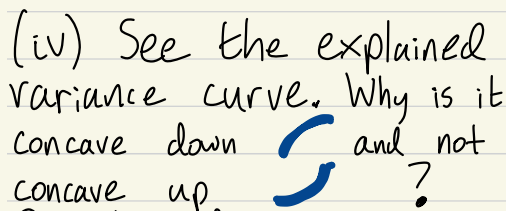 (iv) See the explained
variance curve. Why is it
concave down and not
concave up ?